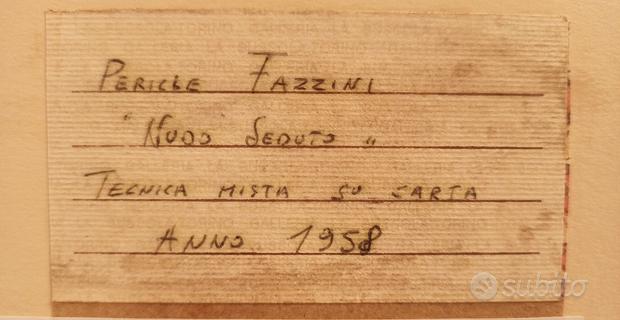 PERICLE FAZZINI
"NUDO SEDUTO"
TECNICA MISTA SU CARTA
ANNO 1958
subito